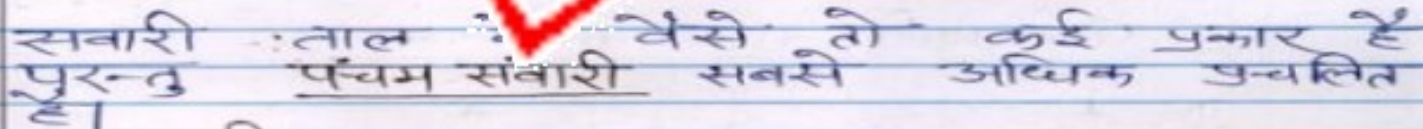 सवारी :ताल : वैसे तो कई प्रकार है
पुरन्तु पंचम संवारी सबसे अधिक प्रचलित
है।